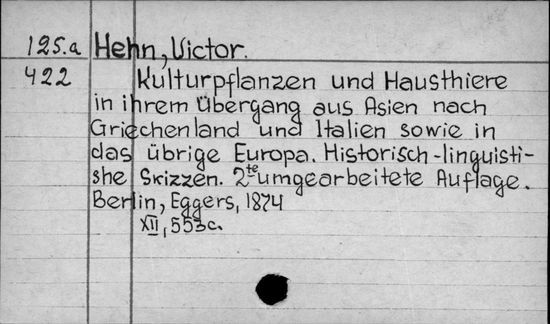 125.a Hehn, Victor.
422 Kulturpflanzen und Hausthiere
in ihrem Übergang aus Asien nach
Griechenland und Italien sowie in
das übrige Europa. Historisch-linguisti-
she Skizzen. 2te umgearbeitete Auflage.
Berlin, Eggers, 1874
XII, 553c.